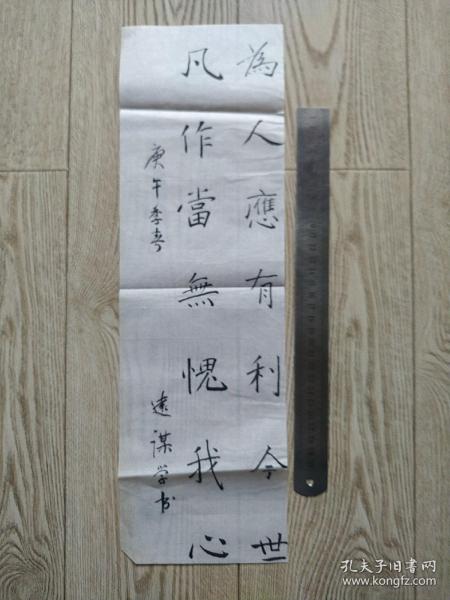 為人應有利今世
凡作當無愧我心
庚午季春
遠謀学书
孔夫子旧书网
www.kongfz.com